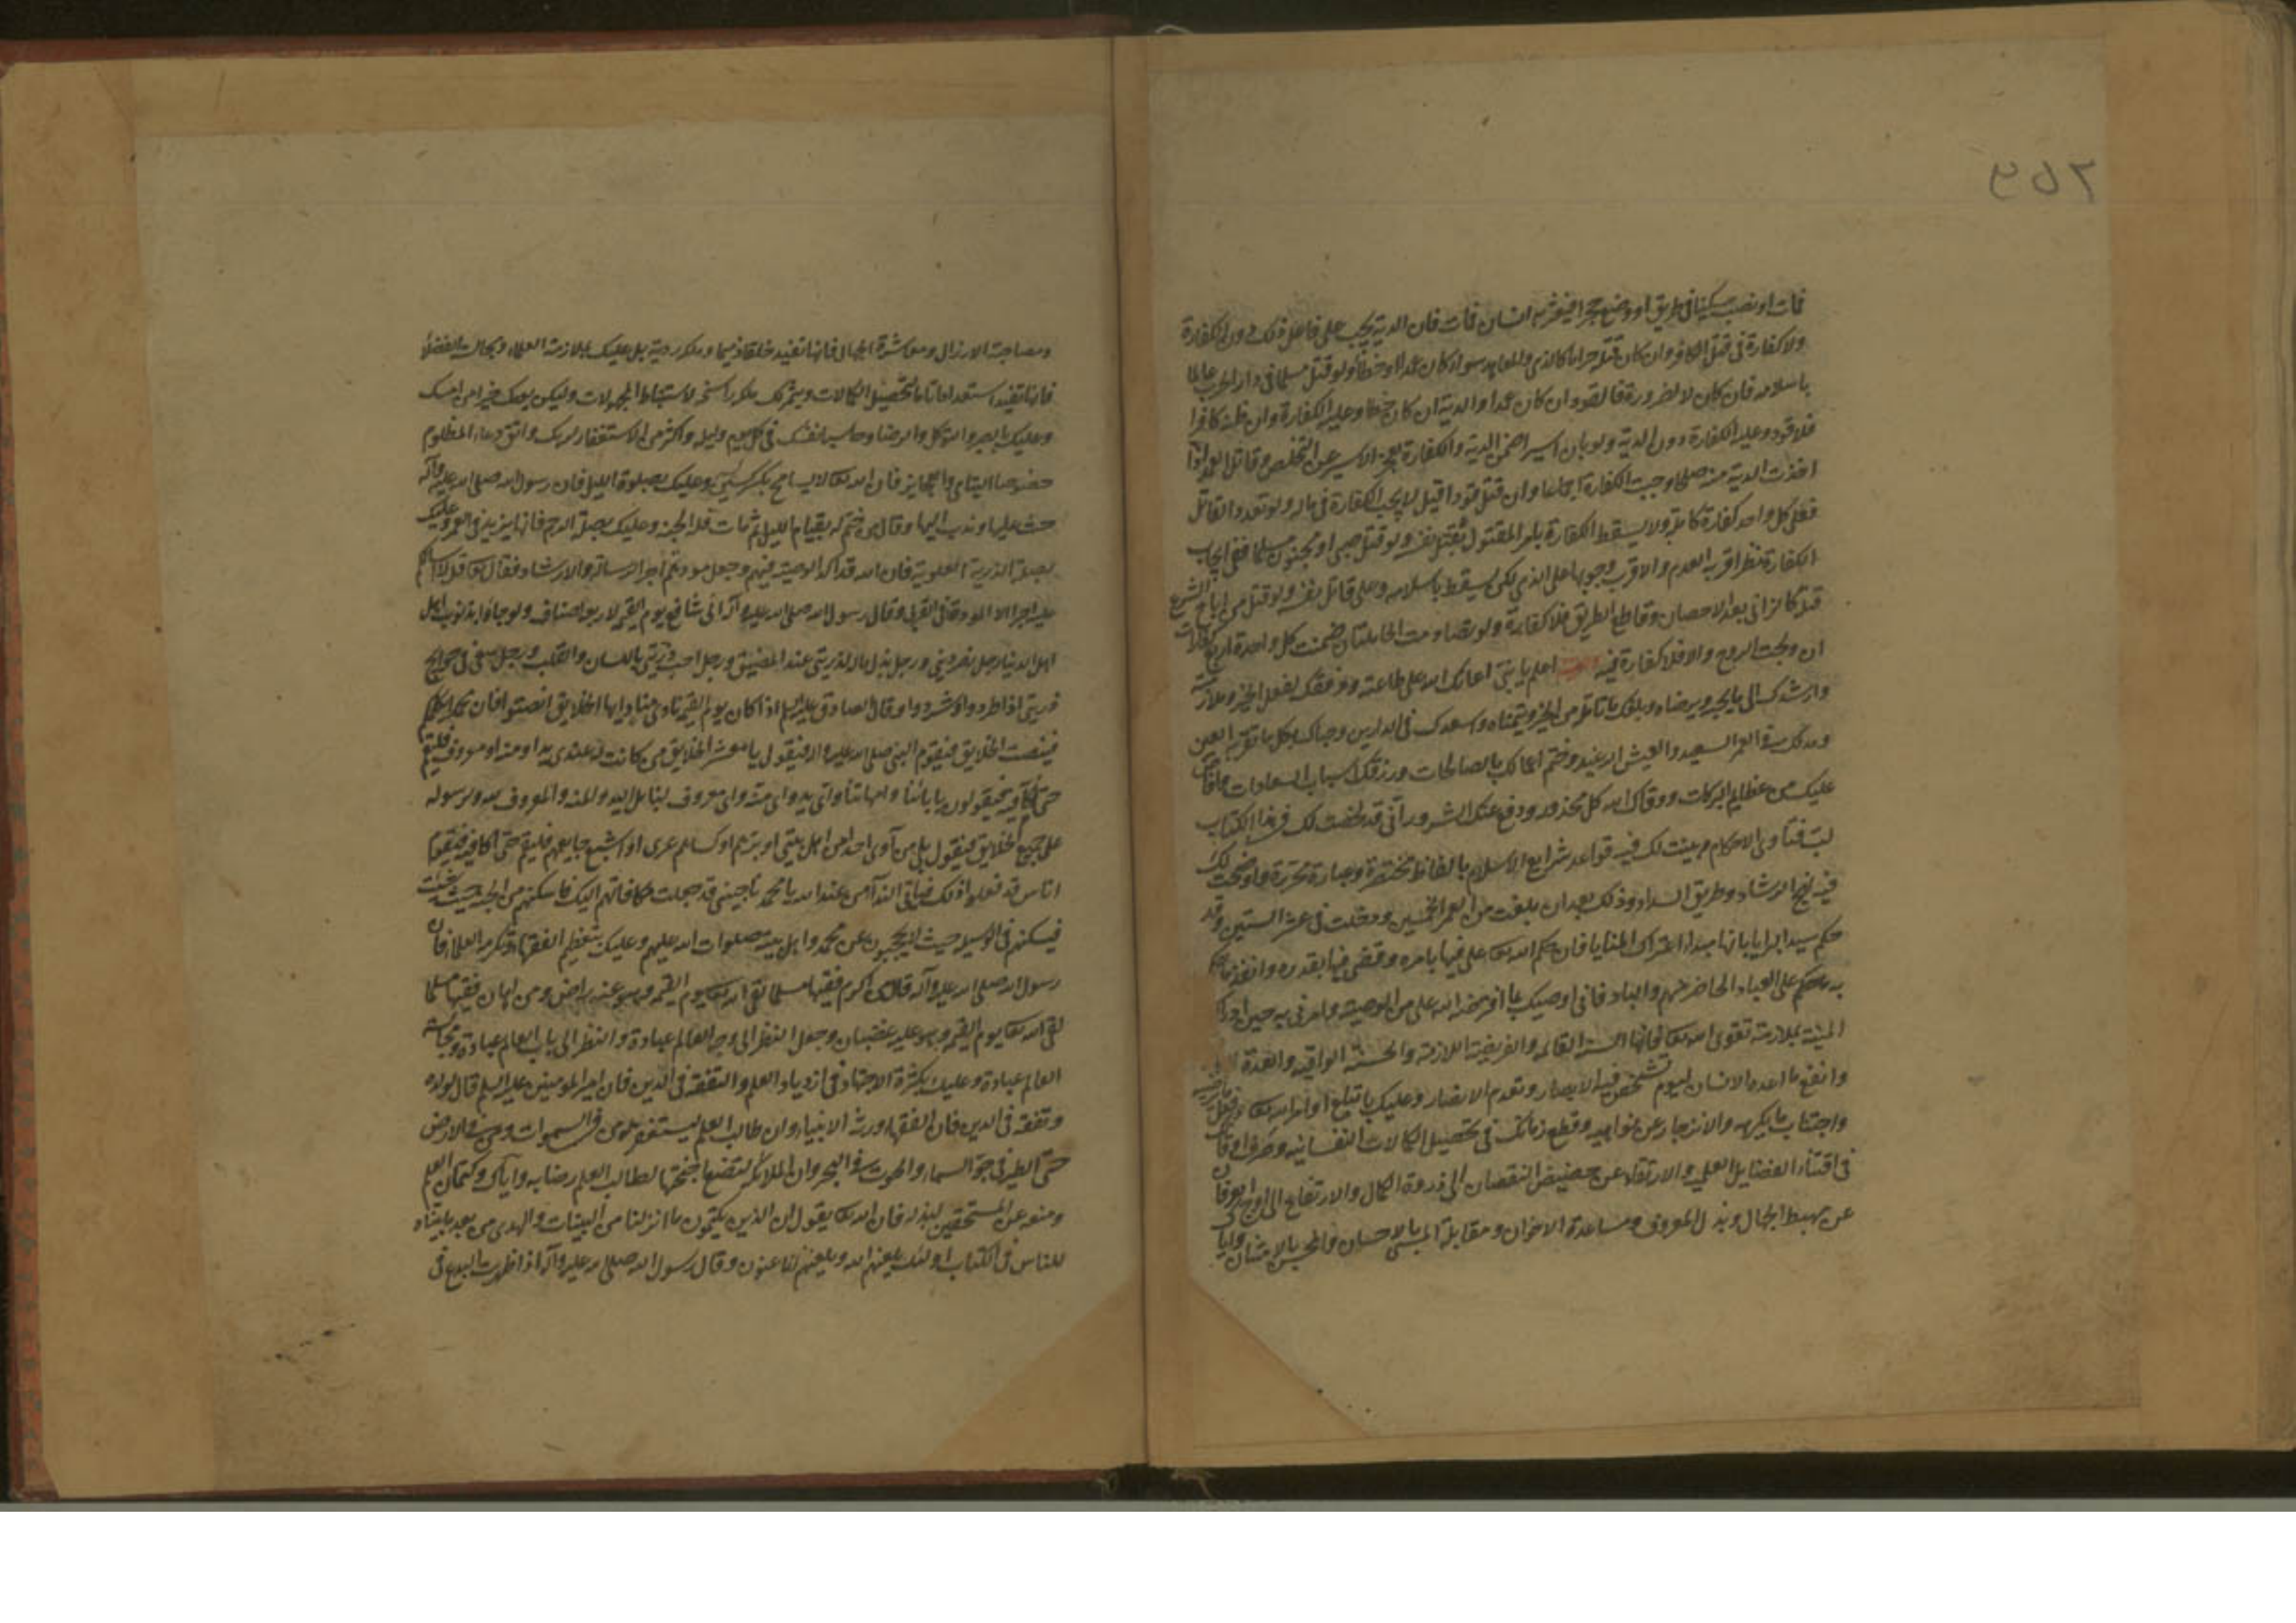 ٣٥٢
فمات او نصب سكينا في طريق او وضع حجرا فيعثر به انسان فمات فان الدية يجب على فاعل ذلك دون الكفارة
ولا كفارة في قتل الكافر وان كان قتله حراما كالذمي والمعاهد سواء كان عمدا او خطأ ولو قتل مسلما في دار الحرب عالما
باسلامه فان كان لا لضرورة فالقود ان كان عمدا والدية ان كان خطا وعليه الكفارة وان ظنه كافرا
فلا قود وعليه الكفارة دون الدية ولو بان اسيرا ضمن الدية والكفارة لعجز الاسير عن التخلص وقاتل العمد اذا
اخذت الدية منه صلحا وجبت الكفارة اجماعا وان قتل قودا قيل لا يجب الكفارة في ماله ولو تعدد القاتل
فعلى كل واحد كفارة كاملة ولا يسقط الكفارة بامر المقتول بقتل نفسه ولو قتل صبي او مجنون مسلما ففي ايجاب
الكفارة نظر اقربه العدم والاقرب وجوبها على الذمي لكن يسقط باسلامه وعلى قاتل نفسه ولو قتل من اباح الشرع
قتله كالزاني بعد الاحصان وقاطع الطريق فلا كفارة ولو تصادمت الحاملتان ضمنت كل واحدة اربع كفارات
ان ولجت الروح والا فلا كفارة فيه اعلم يا بني اعانك الله على طاعته ووفقك لفعل الخير وملازمته
وارشدك الى ما يحبه ويرضاه وبلغك ما تامله من الخير وتتمناه واسعدك في الدارين وحباك بكل ما تقر به العين
ومد لك في العمر السعيد والعيش الرغيد وختم اعمالك بالصالحات ورزقك اسباب السعادات وافاض
عليك من عظايم البركات ووقاك الله كل محذور ودفع عنك الشرور اني قد لخصت لك في هذا الكتاب
لب فتاوى الاحكام وبينت لك فيه قواعد شرايع الاسلام بالفاظ مختصرة وعبارة محررة واوضحت لك
فيه نهج الرشاد وطريق السداد وذلك بعد ان بلغت من العمر الخمسين ودخلت في عشر الستين وقد
حكم سيد البرايا بانها مبدا اعتراك المنايا فان حكم الله تعالى علي فيها بامره وقضى فيها بقدره وانفذ ما حكم
به على العباد الحاضر منهم والباد فاني اوصيك بما افترضه الله علي من الوصية وامرني به حين ادراك
المنية بملازمة تقوى الله تعالى فانها السنة القائمة والفريضة اللازمة والجنة الواقية والعدة
وانفع ما اعده الانسان ليوم تشخص فيه الابصار وتعدم الانصار وعليك باتباع اوامر الله تعالى وفعل ما يرضيه
واجتناب ما يكرهه والانزجار عن نواهيه وقطع زمانك في تحصيل الكمالات النفسانية وصرف اوقاتك
في اقتناء الفضايل العلمية والارتقاء عن حضيض النقصان الى ذروة الكمال والارتفاع الى اوج العرفان
عن مهبط الجهال وبذل المعروف ومساعدة الاخوان ومقابلة المسئ بالاحسان والمحسن بالامتنان واياك
ومصاحبة الارذال ومعاشرة الجهال فانها تفيد خلقا ذميما وملكة ردية بل عليك بملازمة العلماء ومجالسة الفضلاء
فانها تفيد استعدادا تاما لتحصيل الكمالات ويثمر لك ملكة راسخة لاستنباط المجهولات وليكن يومك خيرا من امسك
وعليك بالصبر والتوكل والرضا وحاسب نفسك في كل يوم وليلة واكثر من الاستغفار لربك واتق دعاء المظلوم
خصوصا اليتامى والعجايز فان الله تعالى لا يسامح بكسر كسير وعليك بصلوة الليل فان رسول الله صلى الله عليه وآله
حث عليها وندب اليها وقال من ختم له بقيام الليل ثم مات فله الجنة وعليك بصلة الرحم فانها يزيد في العمر وعليك
بصلة الذرية العلوية فان الله قد اكد الوصية فيهم وجعل مودتهم اجر الرسالة والارشاد فقال تعالى قل لا اسالكم
عليه اجرا الا المودة في القربى وقال رسول الله صلى الله عليه وآله اني شافع يوم القيمة لاربعة اصناف ولو جاؤا بذنوب اهل
اهل الدنيا رجل نصر ذريتي ورجل بذل ماله لذريتي عند المضيق ورجل احب ذريتي باللسان والقلب ورجل سعى في حوايج
ذريتي اذا طردوا او شردوا وقال الصادق عليه السلم اذا كان يوم القيمة نادى مناد ايها الخلايق انصتوا فان محمدا يكلمكم
فينصت الخلايق فيقوم النبي صلى الله عليه وآله فيقول يا معشر الخلايق من كانت له عندي يد او منة او معروف فليقم
حتى اكافيه فيقولون بابائنا وامهاتنا واي يد واي منة واي معروف لنا بل اليد والمنة والمعروف لله ولرسوله
على جميع الخلايق فيقول بلى من آوى احدا من اهل بيتي او برهم او كساهم من عرى او اشبع جايعهم فليقم حتى اكافيه فيقوم
اناس قد فعلوا ذلك فياتي الندآ من عند الله يا محمد يا حبيبي قد جعلت مكافاتهم اليك فاسكنهم من الجنة حيث شئت
فيسكنهم في الوسيلة حيث لا يحجبون عن محمد واهل بيته صلوات الله عليهم وعليك بتعظيم الفقهاء وتكرمة العلماء فان
رسول الله صلى الله عليه وآله قال من اكرم فقيها مسلما لقى الله تعالى يوم القيمة وهو عنه راض ومن اهان فقيها مسلما
لقى الله تعالى يوم القيمة وهو عليه غضبان وجعل النظر الى وجه العالم عبادة والنظر الى باب العالم عبادة ومجالسة
العالم عبادة وعليك بكثرة الاجتهاد في ازدياد العلم والتفقه في الدين فان امير المومنين عليه السلم قال لولده
وتفقه في الدين فان الفقهاء ورثة الانبياء وان طالب العلم ليستغفر له من في السموات ومن في الارض
حتى الطير في جو السماء والحوت في البحر وان الملائكة لتضع اجنحتها لطالب العلم رضا به واياك وكتمان العلم
ومنعه عن المستحقين لبذله فان الله تعالى يقول ان الذين يكتمون ما انزلنا من البينات والهدى من بعد ما بيناه
للناس في الكتاب اولئك يلعنهم الله ويلعنهم اللاعنون وقال رسول الله صلى الله عليه وآله اذا ظهرت البدع في